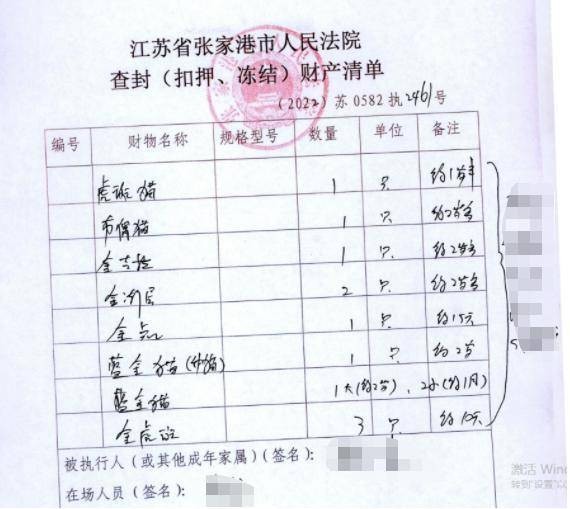 江苏省张家港市人民法院
查封（扣押、冻结）财产清单
（2022）苏0582执2461号
编号 财物名称 规格型号 数量 单位 备注
虎斑猫 1 只 约1岁半
布偶猫 1 只 约2岁多
金吉拉 1 只 约2岁多
金渐层 2 只 约2岁多
金点 1 只 约15天
蓝金猫 1 只 约2岁
蓝金猫 1大(约2岁)、2小(约1月)
金虎斑 3 只 约10天
被执行人（或其他成年家属）(签名)：
在场人员（签名）：
激活 Wind
转到"设置"以